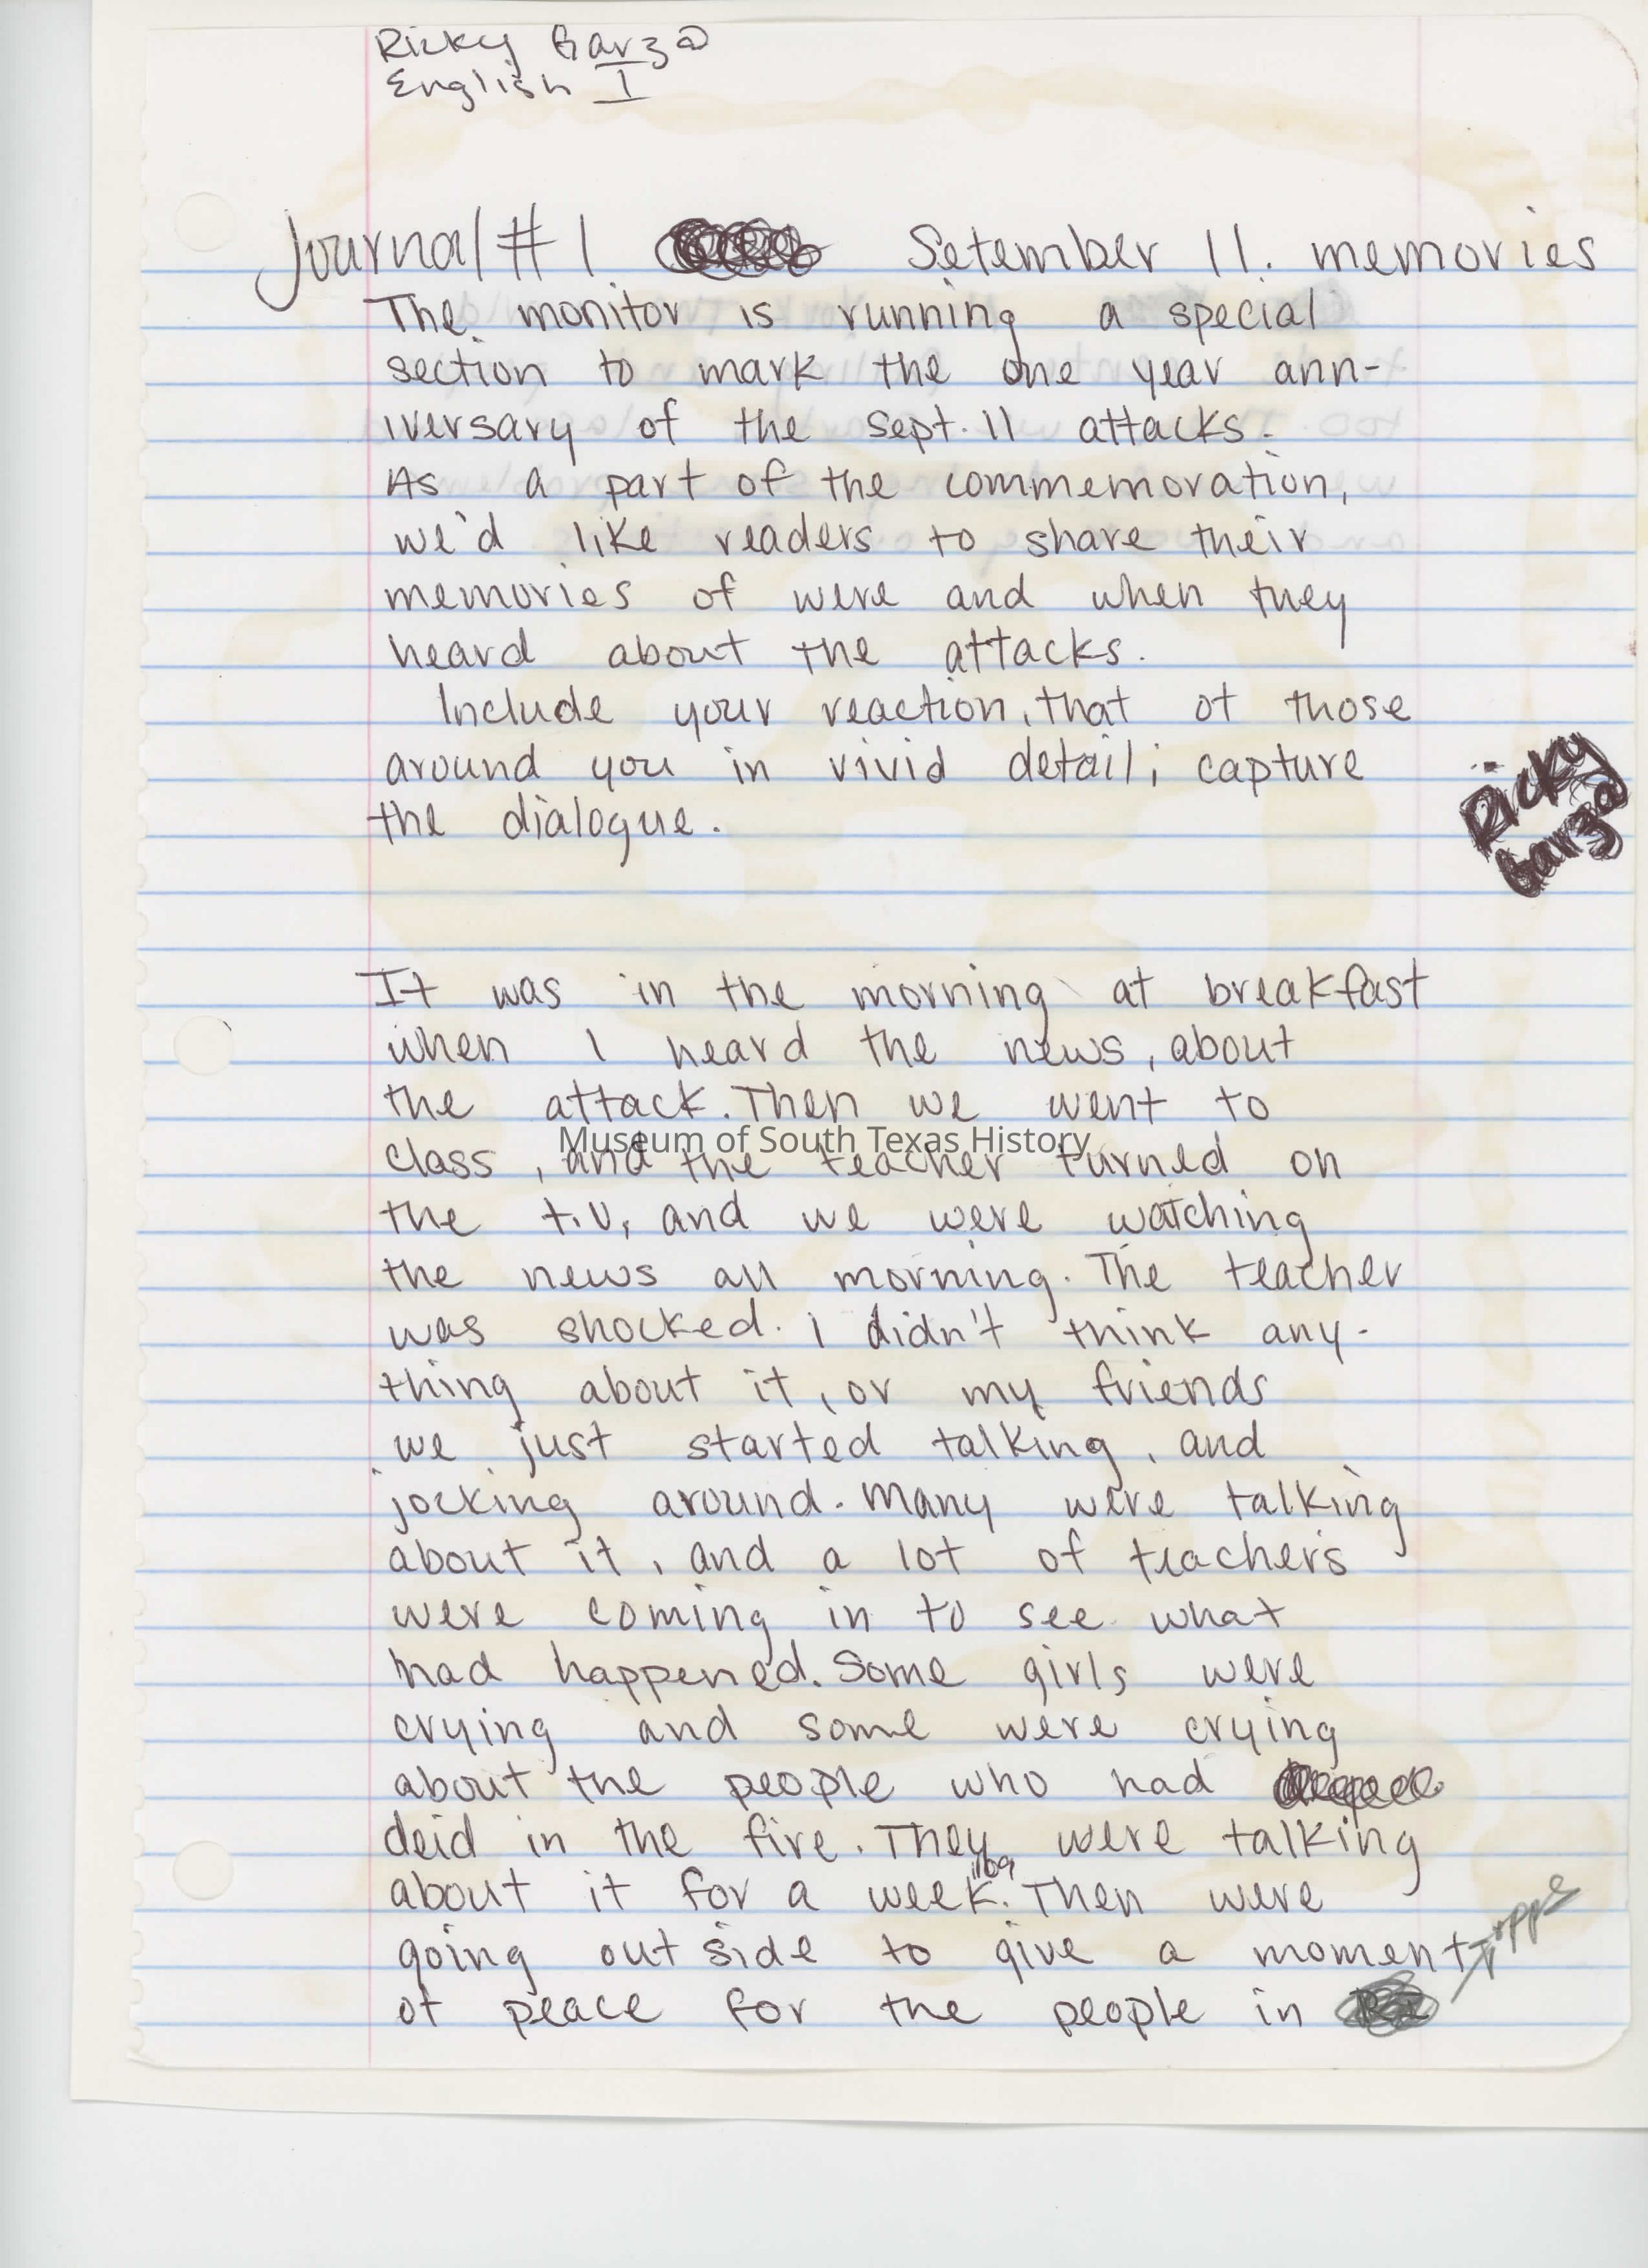 Ricky Garza
English I
Journal #1 Setember 11. memories
The monitor is running a special
section to mark the one year ann-
iversary of the sept. 11 attacks.
As a part of the commemoration,
we'd like readers to share their
memories of were and when they
heard about the attacks.
Include your reaction, that of those
around you in vivid detail; capture
the dialogue.
Ricky
Garza
It was in the morning at breakfast
when I heard the news, about
the attack. Then we went to
Museum of South Texas History
class, and the teacher turned on
the t.v, and we were watching
the news all morning. The teacher
was shocked. i didn't think any-
thing about it, or my friends
we just started talking, and
jocking around. Many were talking
about it, and a lot of teachers
were coming in to see what
had happened. Some girls were
crying and some were crying
about the people who had
deid in the fire. They were talking
about it for a week. Then were
going out side to give a moment
of peace for the people in